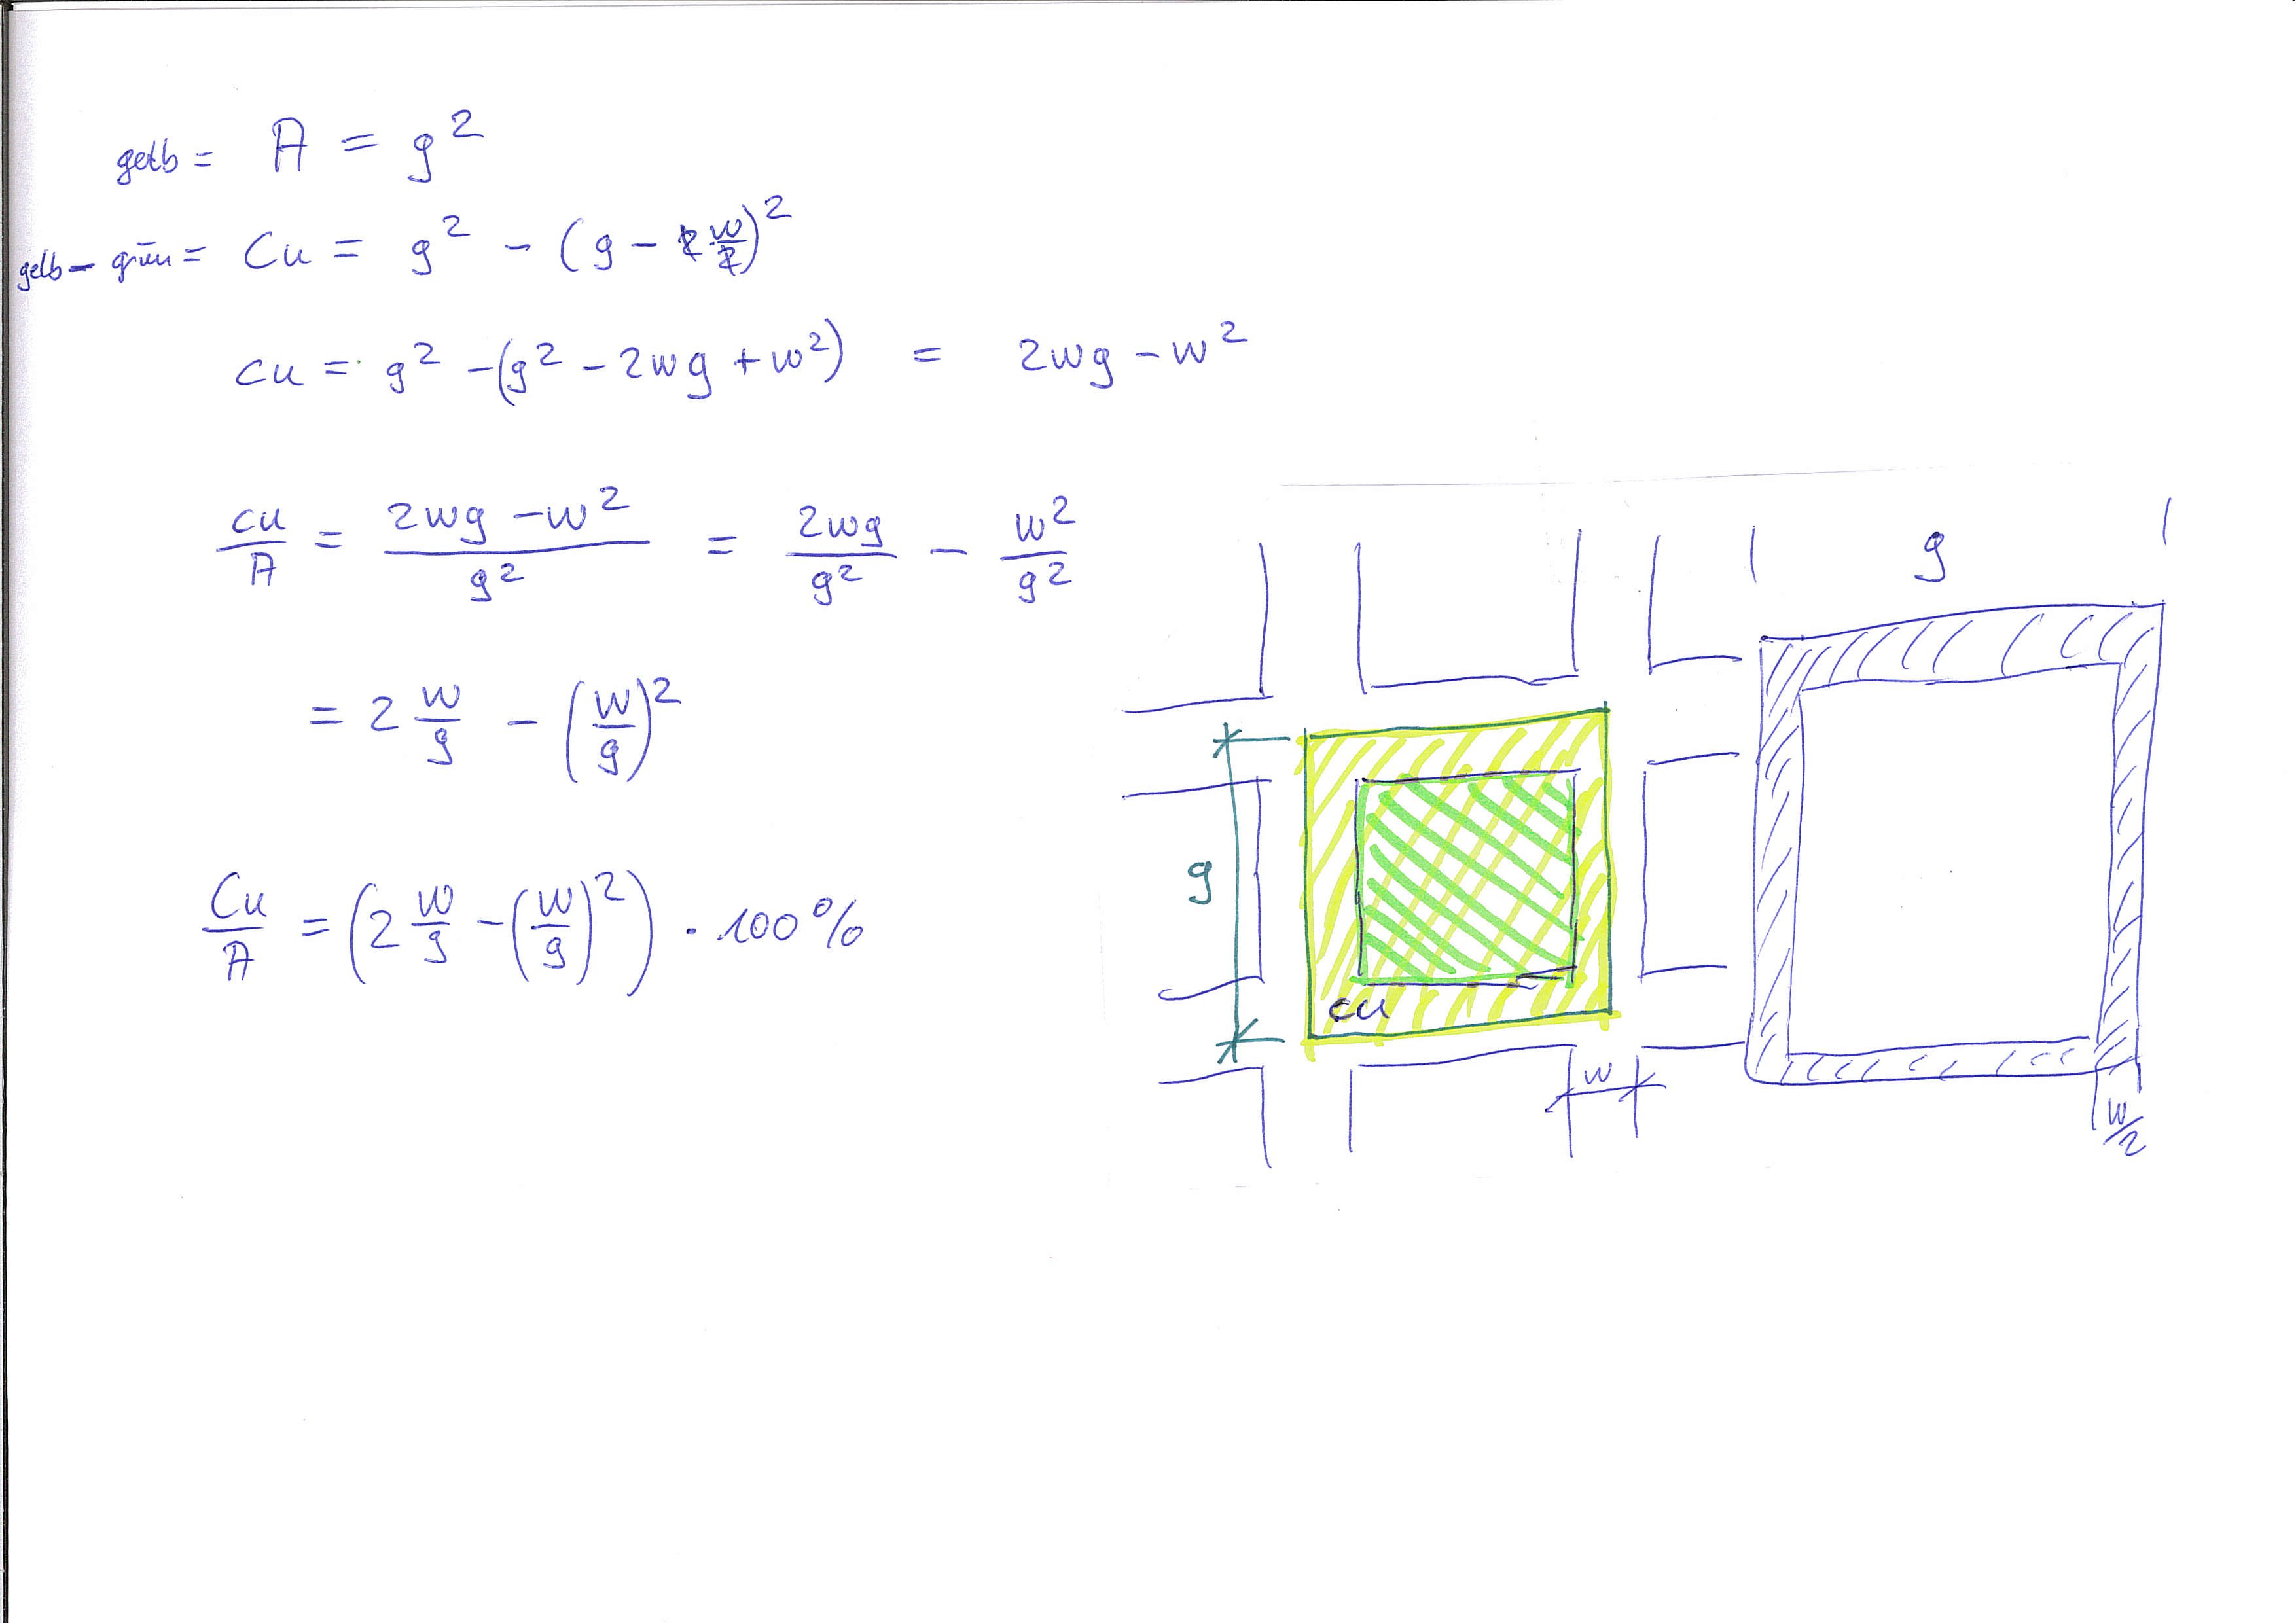 gelb = A = g²
gelb - grün = Cu = g² - (g - 2 w/2)²
cu = g² - (g² - 2wg + w²) = 2wg - w²
cu/A = (2wg - w²)/g² = 2wg/g² - w²/g²
= 2 w/g - (w/g)²
Cu/A = (2 w/g - (w/g)²) · 100%
g
g
cu
w
w/2